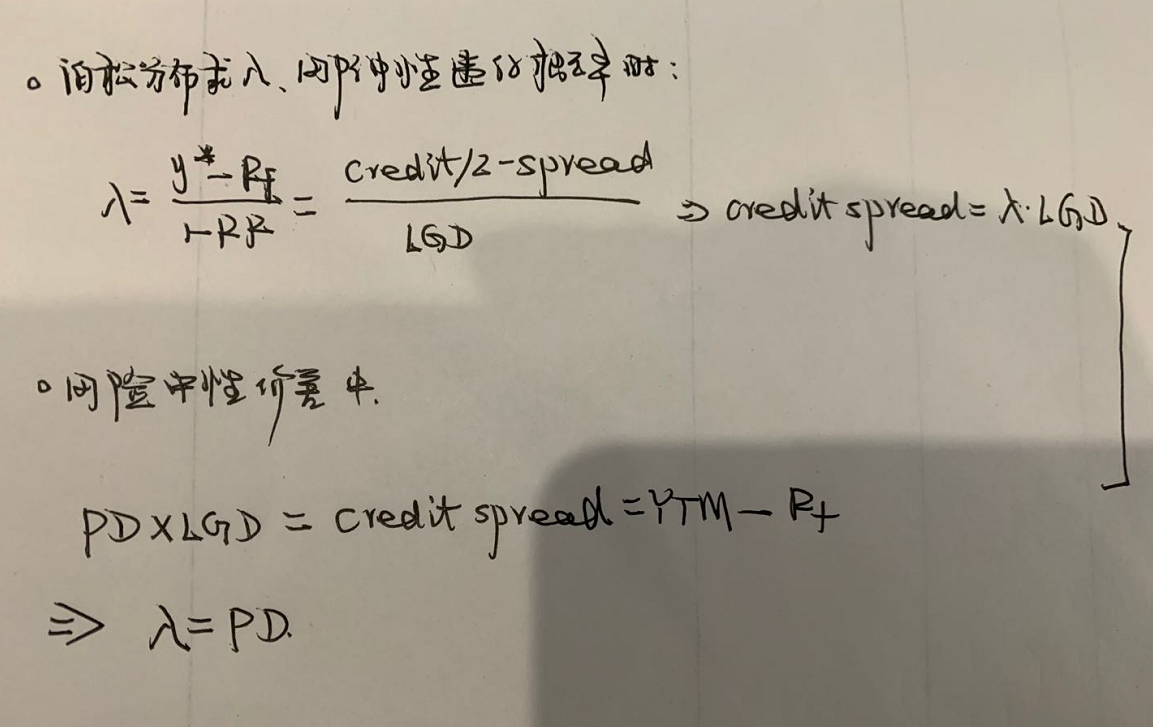 泊松分布求λ、风险中性违约概率时:
λ= y*-Rf / 1-RR = credit/z-spread / LGD ⇒ credit spread=λ·LGD
风险中性价差中.
PD×LGD = credit spread=YTM-Rf
⇒ λ=PD.